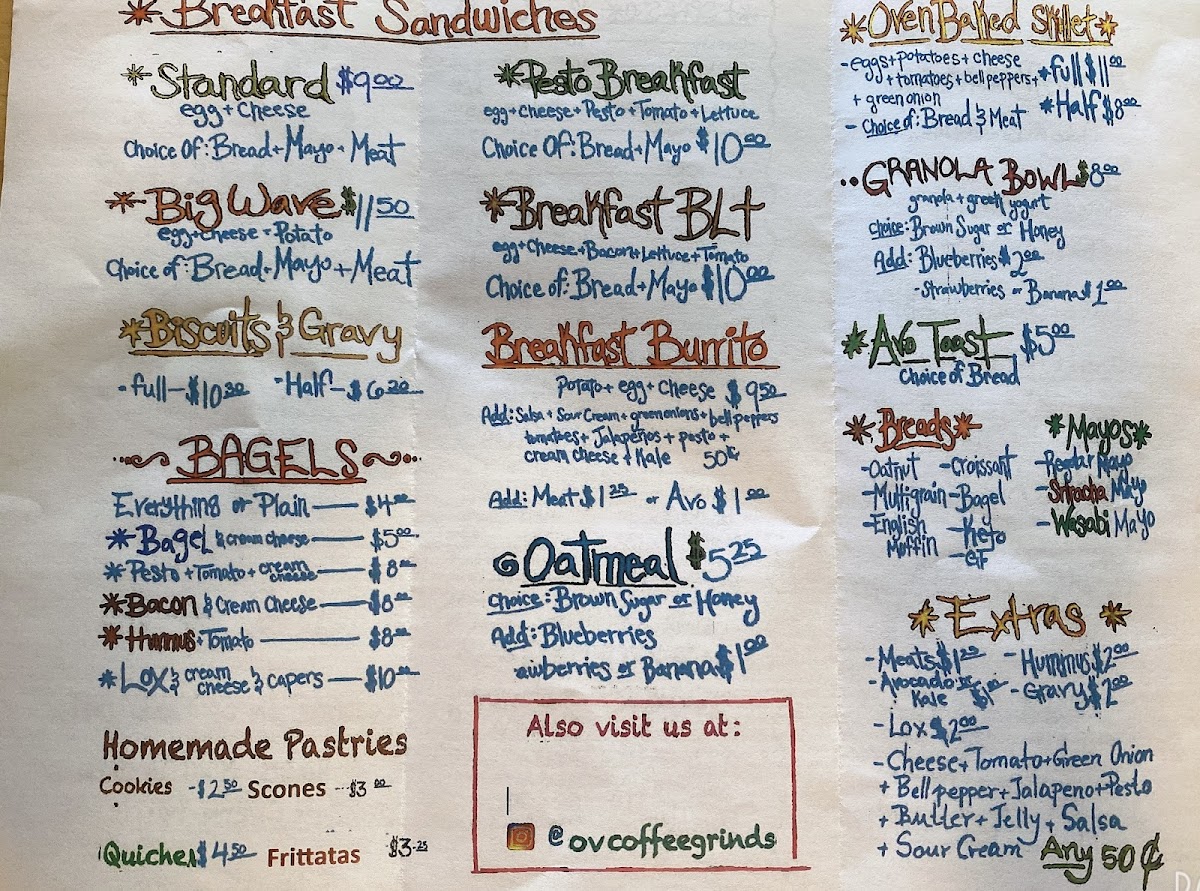 Breakfast Sandwiches
*Standard $9.00
egg + cheese
Choice Of: Bread + Mayo + Meat
*Big Wave $11.50
egg + cheese + Potato
Choice of: Bread + Mayo + Meat
*Biscuits & Gravy
- full — $10.30 - Half — $6.20
BAGELS
Everything or Plain — $4.00
*Bagel & cream cheese — $5.00
*Pesto + Tomato + cream cheese — $8.00
*Bacon & Cream Cheese — $8.00
*Hummus + Tomato — $8.00
*Lox & cream cheese & capers — $10.00
Homemade Pastries
Cookies - $2.50 Scones - $3.00
Quiches $4.50 Frittatas $3.25
*Pesto Breakfast
egg + Cheese + Pesto + Tomato + Lettuce
Choice Of: Bread + Mayo $10.00
*Breakfast BLT
egg + Cheese + Bacon + Lettuce + Tomato
Choice of: Bread + Mayo $10.00
Breakfast Burrito
Potato + egg + cheese $9.50
Add: Salsa + Sour Cream + green onions + bell peppers
tomatoes + Jalapeños + pesto +
cream cheese + Kale 50¢
Add: Meat $1.25 or Avo $1.00
Oatmeal $5.25
choice: Brown Sugar or Honey
Add: Blueberries
awberries or Banana $1.00
Also visit us at:
@ovcoffeegrinds
*Oven Baked Skillet*
- eggs + potatoes + cheese *full $11.00
+ tomatoes + bell peppers +
+ green onion *Half $8.00
- Choice of: Bread & Meat
GRANOLA BOWL $8.00
granola + greek yogurt
choice: Brown Sugar or Honey
Add: Blueberries $2.00
- Strawberries or Banana $1.00
*Avo Toast $5.00
Choice of Bread
*Breads*
- Oatnut - Croissant
- Multigrain - Bagel
- English Muffin - Keto
- GF
*Mayos*
- Regular Mayo
- Sriracha Mayo
- Wasabi Mayo
*Extras*
- Meats $1.25 - Hummus $2.00
- Avocado or Kale $1.00 - Gravy $2.00
- Lox $2.00
- Cheese + Tomato + Green Onion
+ Bell pepper + Jalapeno + Pesto
+ Butter + Jelly + Salsa
+ Sour Cream Any 50¢